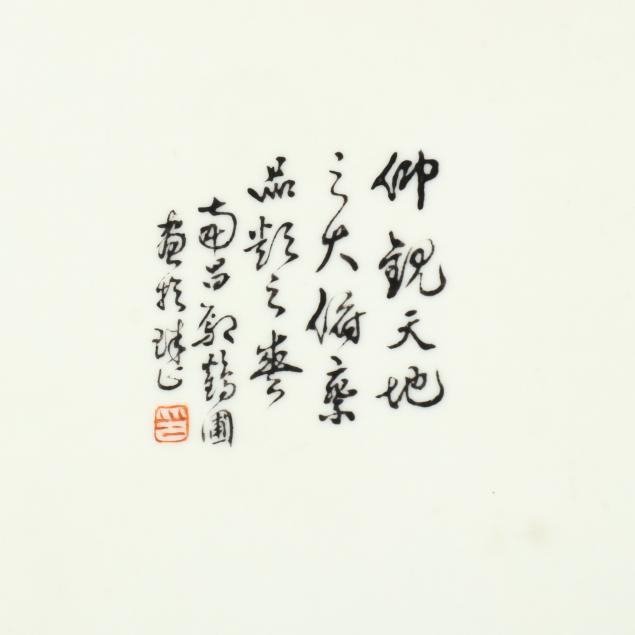 仰觀天地
之大俯察
品類之
南昌鶴圃
畫於珠山